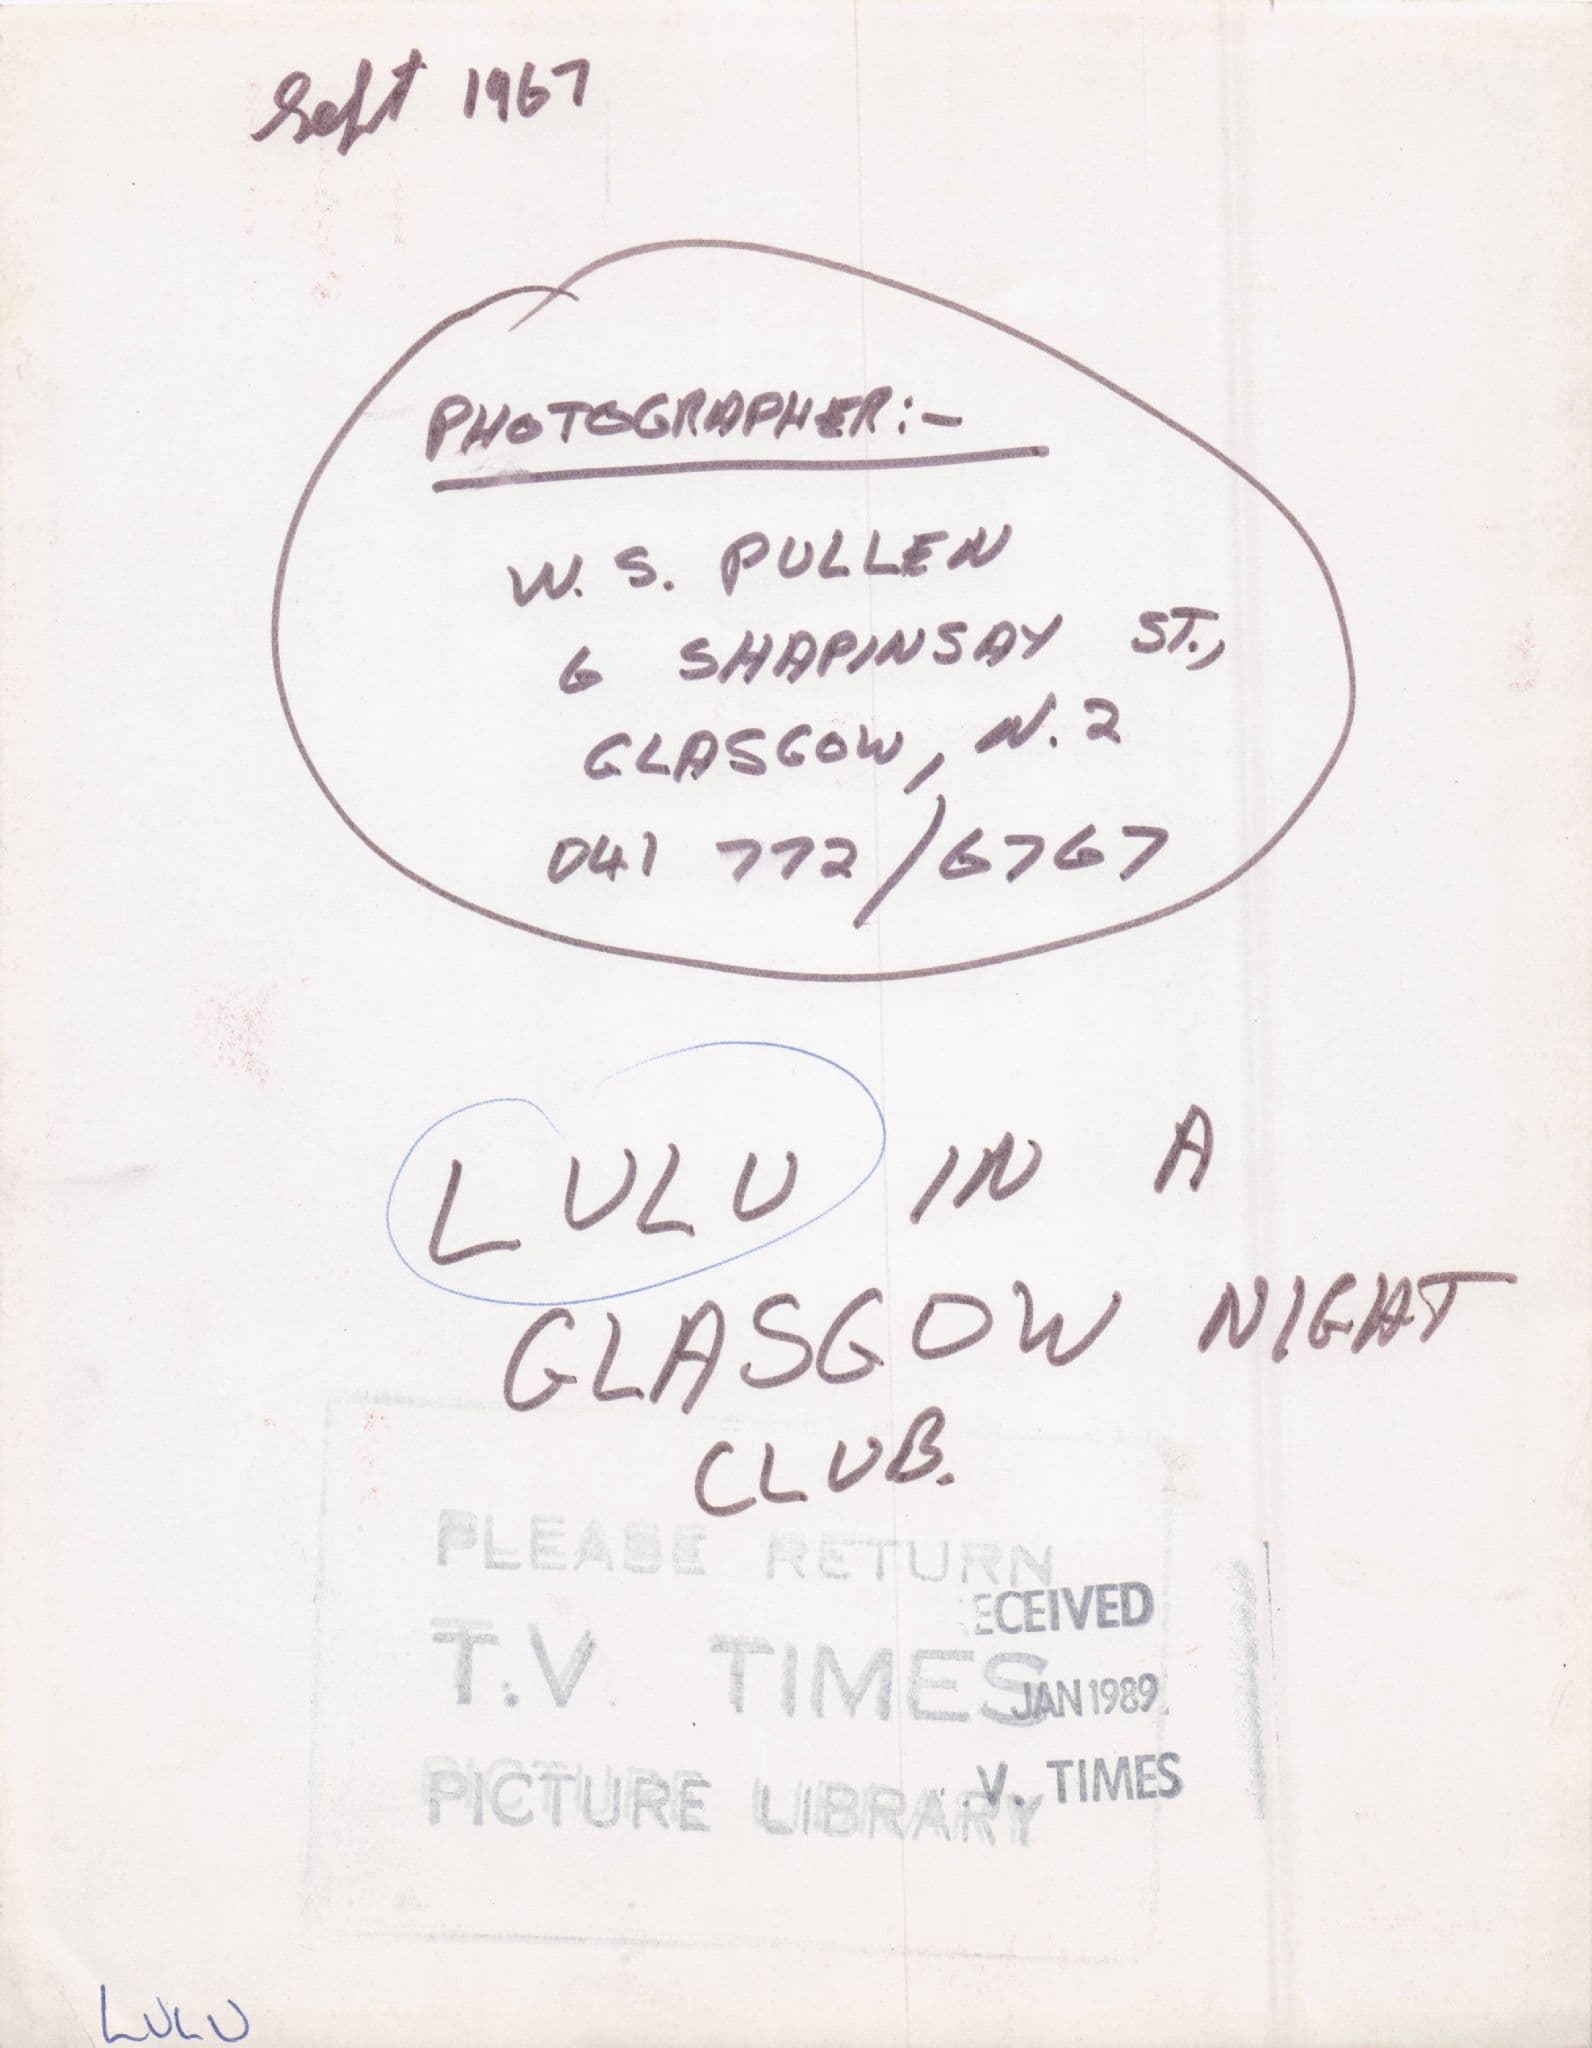 Sept 1967
PHOTOGRAPHER:-
W. S. PULLEN
6 SHAPINSAY ST.,
GLASGOW, N.2
041 772/6767
LULU IN A
GLASGOW NIGHT
CLUB.
PLEASE RETURN
T.V. TIMES
PICTURE LIBRARY
ECEIVED
JAN 1989
.V. TIMES
LULU